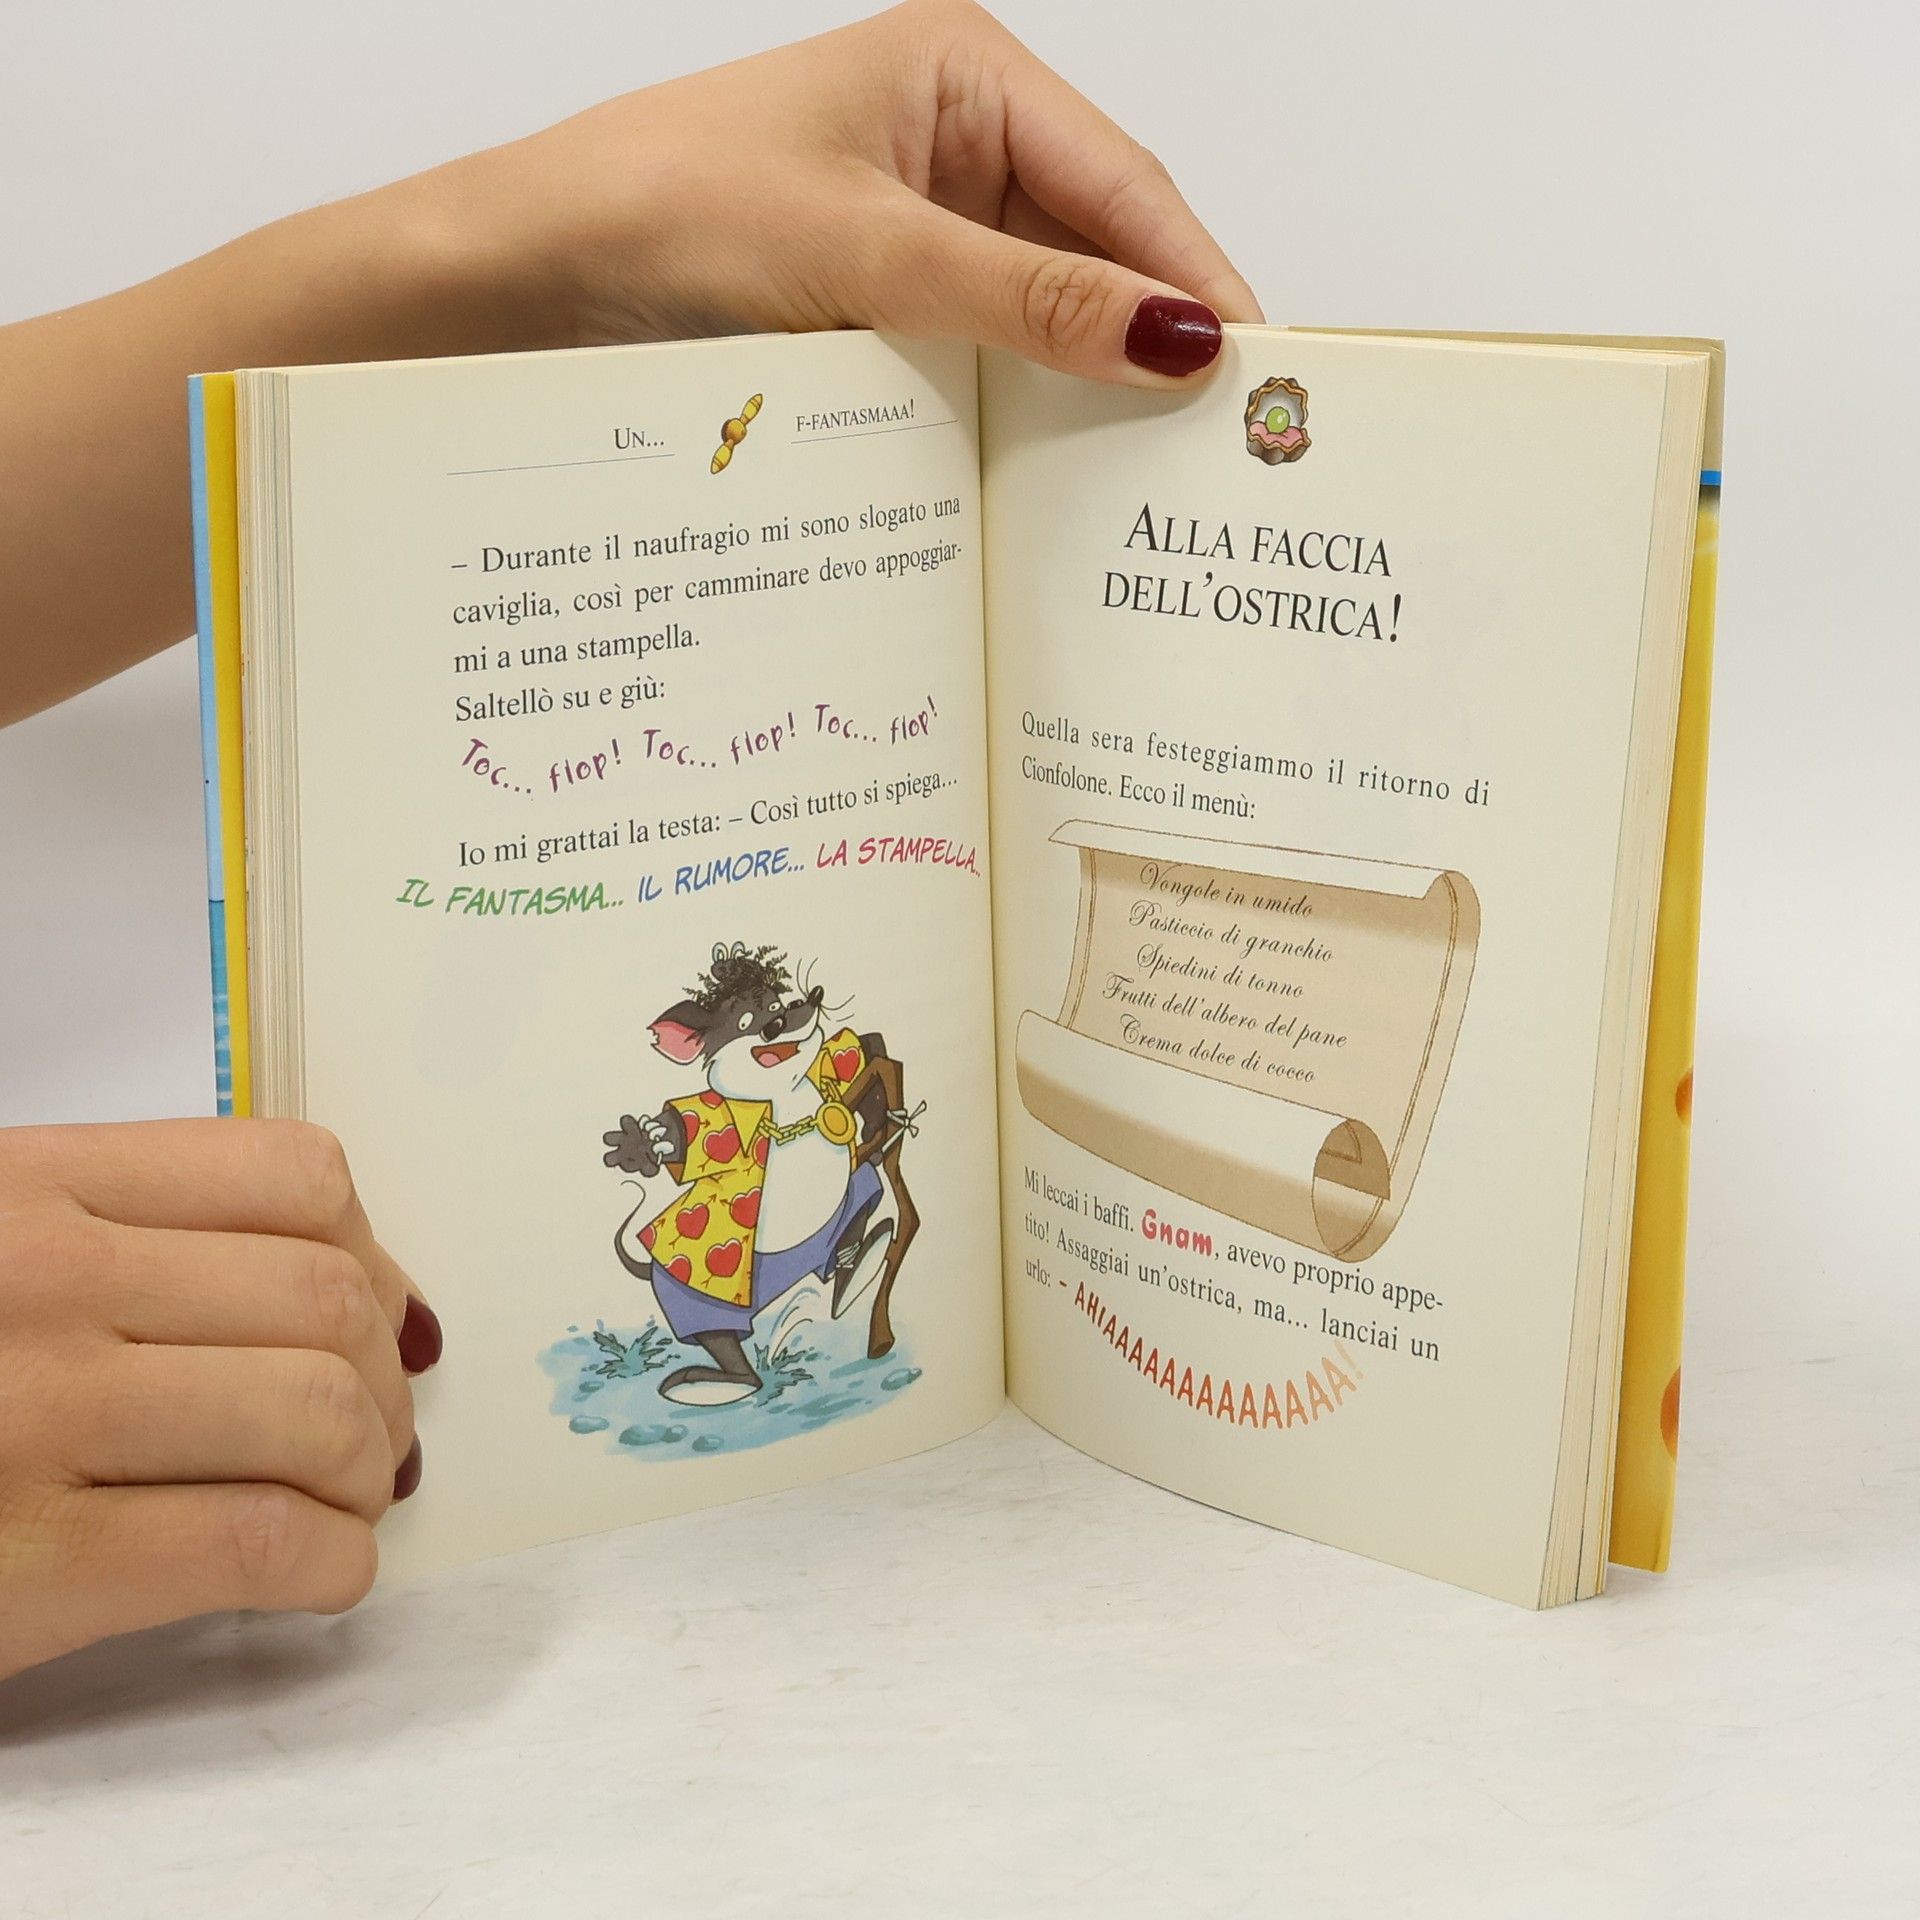 UN... F-FANTASMAAA!
– Durante il naufragio mi sono slogato una
caviglia, così per camminare devo appoggiar-
mi a una stampella.
Saltellò su e giù:
Toc... flop! Toc... flop! Toc... flop!
Io mi grattai la testa: – Così tutto si spiega...
IL FANTASMA... IL RUMORE... LA STAMPELLA...
ALLA FACCIA
DELL'OSTRICA!
Quella sera festeggiammo il ritorno di
Cionfolone. Ecco il menù:
Vongole in umido
Pasticcio di granchio
Spiedini di tonno
Frutti dell'albero del pane
Crema dolce di cocco
Mi leccai i baffi. Gnam, avevo proprio appe-
tito! Assaggiai un'ostrica, ma... lanciai un
urlo: – AHIAAAAAAAAAAAAAA!